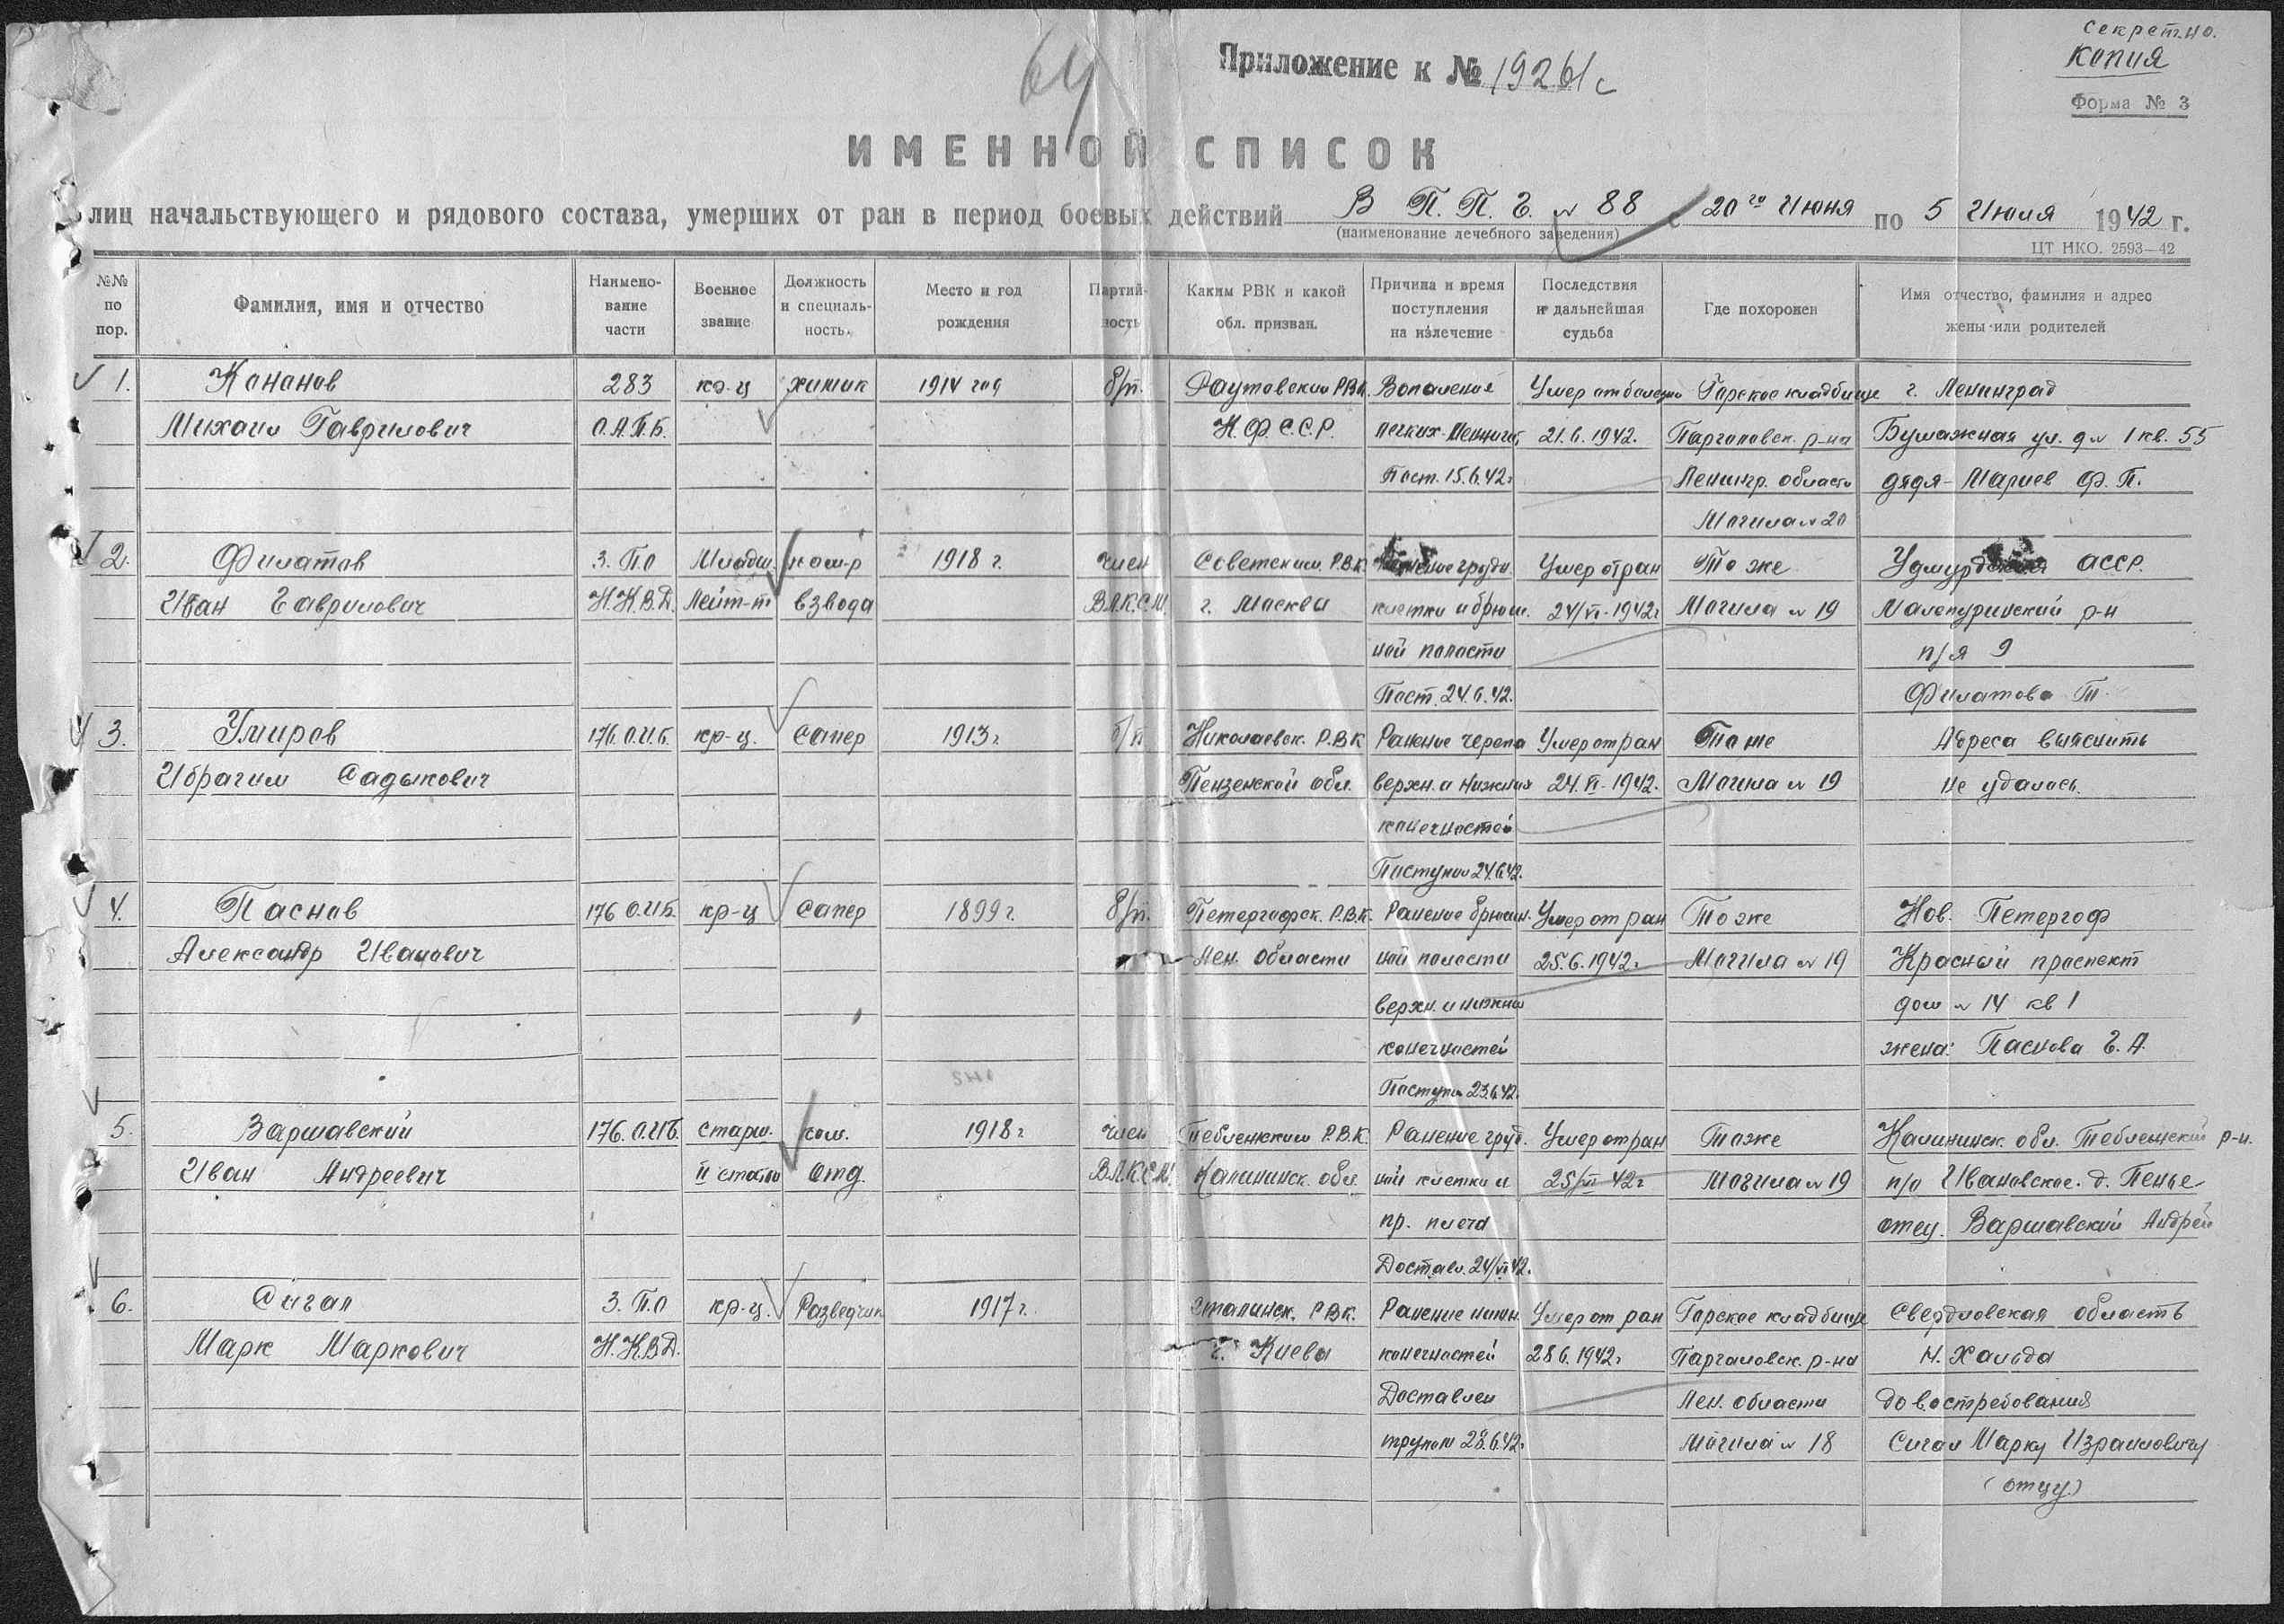 Секретно.
Копия
Форма № 3
64
Приложение к № 19261с
ИМЕННОЙ СПИСОК
лиц начальствующего и рядового состава, умерших от ран в период боевых действий В П.П.Г. № 88 с 20го Июня по 5 Июля 1942 г.
(наименование лечебного заведения)
ЦТ НКО. 2593—42
№№ по пор.
Фамилия, имя и отчество
Наимено-вание части
Военное звание
Должность и специаль-ность.
Место и год рождения
Партий-ность
Каким РВК и какой обл. призван.
Причина и время поступления на излечение
Последствия и дальнейшая судьба
Где похоронен
Имя отчество, фамилия и адрес жены или родителей
1. Кананов 283 кр-ц химик 1914 год б/п. Раутовским РВК. Воспаление Умер от болезни Горское кладбище г. Ленинград
Михаил Гаврилович О.А.П.Б. К.Ф.С.С.Р. легких. 21.6.1942. Парголовск. р-на Бумажная ул. д № 1 кв. 55
Пост. 15.6.42г Ленингр. области дядя - Мариев Ф. П.
Могила № 20
2. Филатов 3. П.П Младш. ком-р 1918 г. член Советским. Р.В.К. грудн. Умер от ран То же АССР.
Иван Гаврилович Н.К.В.Д. Лейт-т взвода В.Л.К.С.М. г. Москвы клетки и брюш. 24/VI-1942г Могила № 19 Малопургинский р-н
ной полости п/я 9
Пост. 24.6.42. Филатова Т.
3. Умиров 176. О.И.Б. кр-ц. Сапер 1913г б/п Николаевск. Р.В.К Ранение черепа Умер от ран То же Адреса выяснить
Ибрагим Садыкович Пензенской обл. верхн. и нижних 24.VI-1942. Могила № 19 не удалось.
конечностей
Поступил 24.6.42.
4. Паснов 176 О.И.Б. кр-ц Сапер 1899г. б/п. Петергофск. Р.В.К. Ранение брюшн. Умер от ран То же Нов. Петергоф
Александр Иванович Лен. области ной полости 25.6.1942г. Могила № 19 Красный проспект
верхн. и нижних дом № 14 кв 1
конечностей жена: Паснова Е. А.
Поступил 23.6.42.
5. Варшавский 176. О.И.Б. старш. ком. 1918г член Теблешским Р.В.К. Ранение груд. Умер от ран То же Калининск. обл. Теблешский р-н.
Иван Андреевич II статьи отд. В.Л.К.С.М. Калининск. обл. ной клетки и 25/VI 42г Могила № 19 п/о Ивановское. д. Пенье
пр. плеча отец. Варшавский Андрей
Доставл. 24/VI 42.
6. Сигал 3. П.П кр-ц. Разведчик 1917г. Сталинск. РВК. Ранение нижн. Умер от ран Горское кладбище Свердловская область
Марк Маркович Н.К.В.Д. г. Киева конечностей 28 6.1942г Парголовск. р-на
Доставлен Лен. области до востребования
трупом 28.6.42г. Могила № 18 Сигал Марку Израиловичу
(отцу)